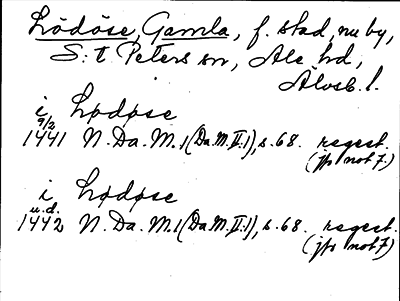 Lödöse, Gamla, f. stad, nu by,
S:t Peters sn, Ale hd,
Älvsb. l.
i Lødøse
9/2
1441 N. Da. M. 1 (Da. M. II:1), s. 68. regest.
(jfr not 7.)
i Lødøse
u.d.
1442 N. Da. M. 1 (Da. M. II:1), s. 68. regest.
(jfr not 7)